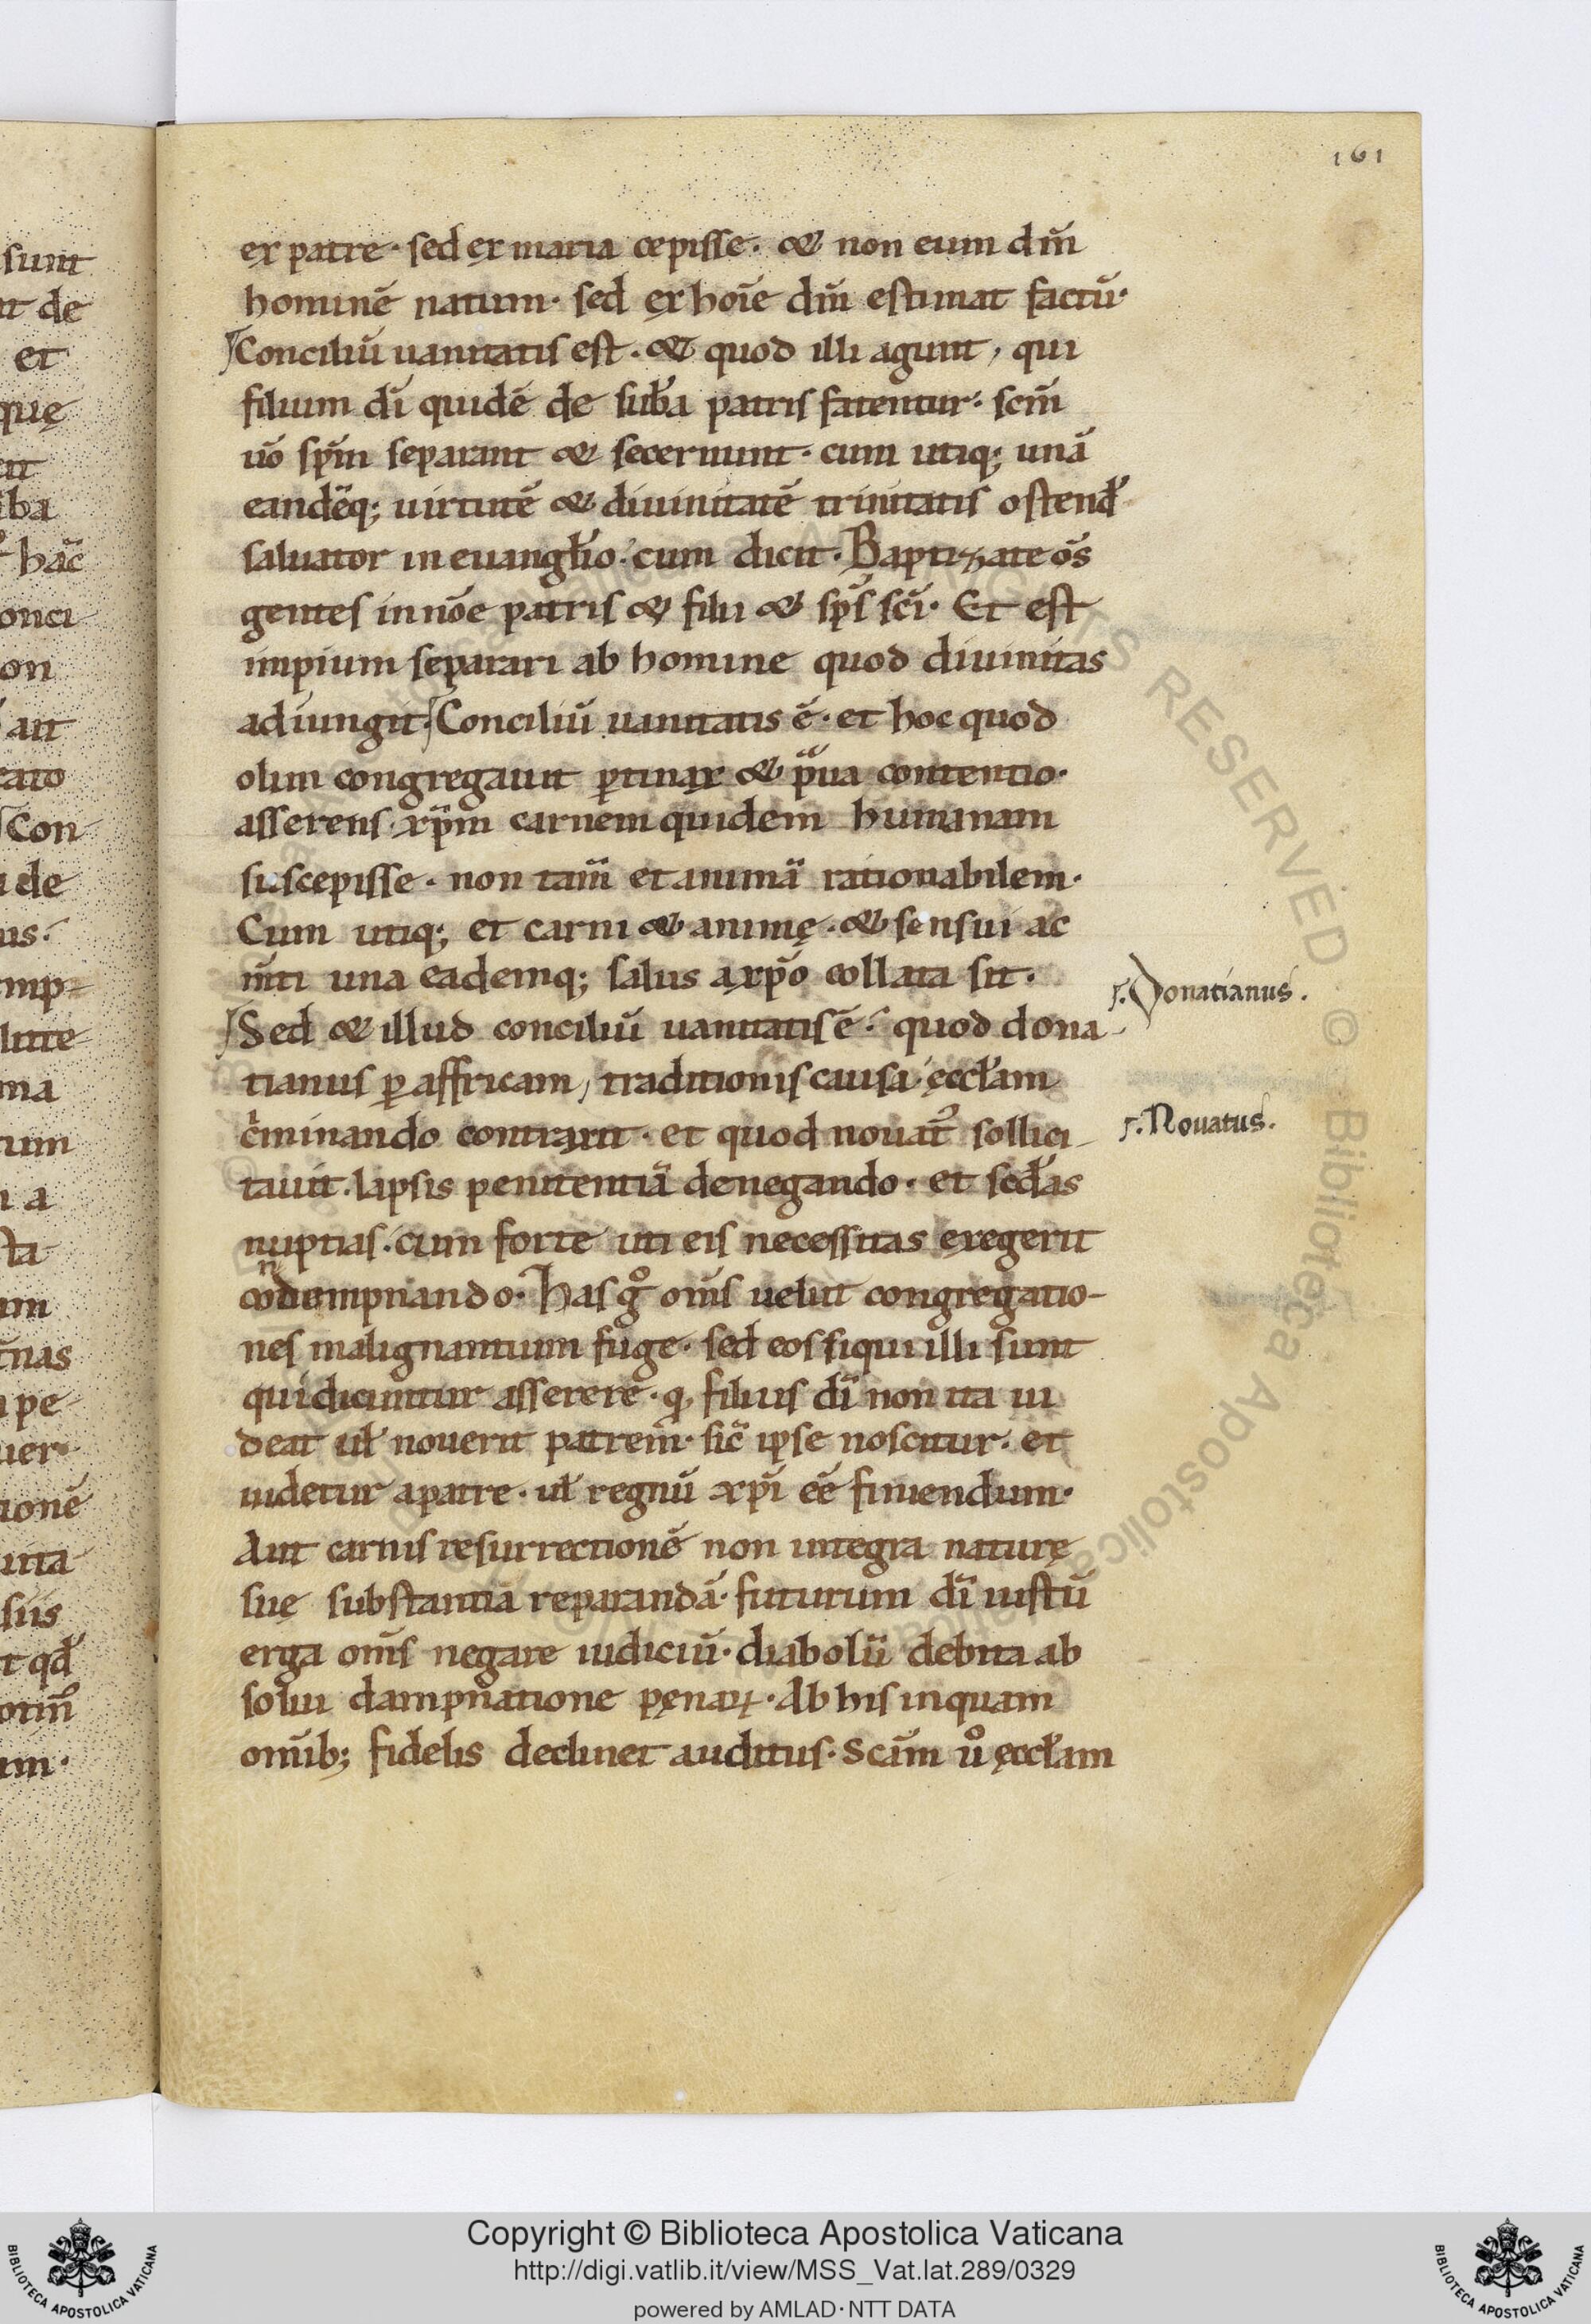 161
ex patre · sed ex maria cepisse · & non eum dm̄
hominē natum · sed ex hoīe dm̄ estimat factū ·
Conciliū uanitatis est · & quod illi agunt, qui
filium dī quidē de sub̄a patris fatentur · scm̄
uō spm̄ separant & secernunt · cum utiq; unā
eandēq; uirtutē & diuinitatē trinitatis ostend̄
saluator in euangl̄io · cum dicit · Baptizate om̄s
gentes in nōe patris & filii & sps̄ scī · Et est
impium separari ab homine quod diuinitas
adiungit · Conciliū uanitatis ē · et hoc quod
olim congregauit ꝑtinax & praua contentio ·
asserens xpm̄ carnem quidem humanam
suscepisse · non tam̄ et animā rationabilem ·
Cum utiq; et carni & animę · & sensui ac
m̄ti una eademq; salus a xpō collata sit ·
Donatianus .
Sed & illud conciliū uanitatis ē · quod dona-
tianus ꝑ affricam, traditionis causa ęccl̄am
c̄minando contraxit · et quod nouat᷒ sollici-
Nouatus .
tauit · lapsis penitentiā denegando · et sed̄as
nuptias · cum forte uti eis necessitas exegerit
condempnando · Has gͦ om̄s uelut congregatio-
nes malignantium fuge · sed eos siqui illi sunt
qui dicuntur asserere · q̛ filius dī non ita ui
deat ul̄ nouerit patrem · sic̄ ipse noscitur · et
uidetur a patre · ul̄ regnū xpī eē finiendum ·
Aut carnis resurrectionē non integra naturę
suę substantia reparandā · futurum dī iustū
erga om̄s negare iudiciū · diabolū debita ab
solui dampnatione pęnaꝝ · Ab his inquam
om̄ib; fidelis declinet auditus · Scām uͦ ęccl̄am
sunt
de
et
quę
ba
hāc
onci
on
Con
de
us
mp
ma
tum
a
sta
um
pe
uer
tionē
Copyright © Biblioteca Apostolica Vaticana
http://digi.vatlib.it/view/MSS_Vat.lat.289/0329
powered by AMLAD · NTT DATA
BIBLIOTECA APOSTOLICA VATICANA
BIBLIOTECA APOSTOLICA VATICANA